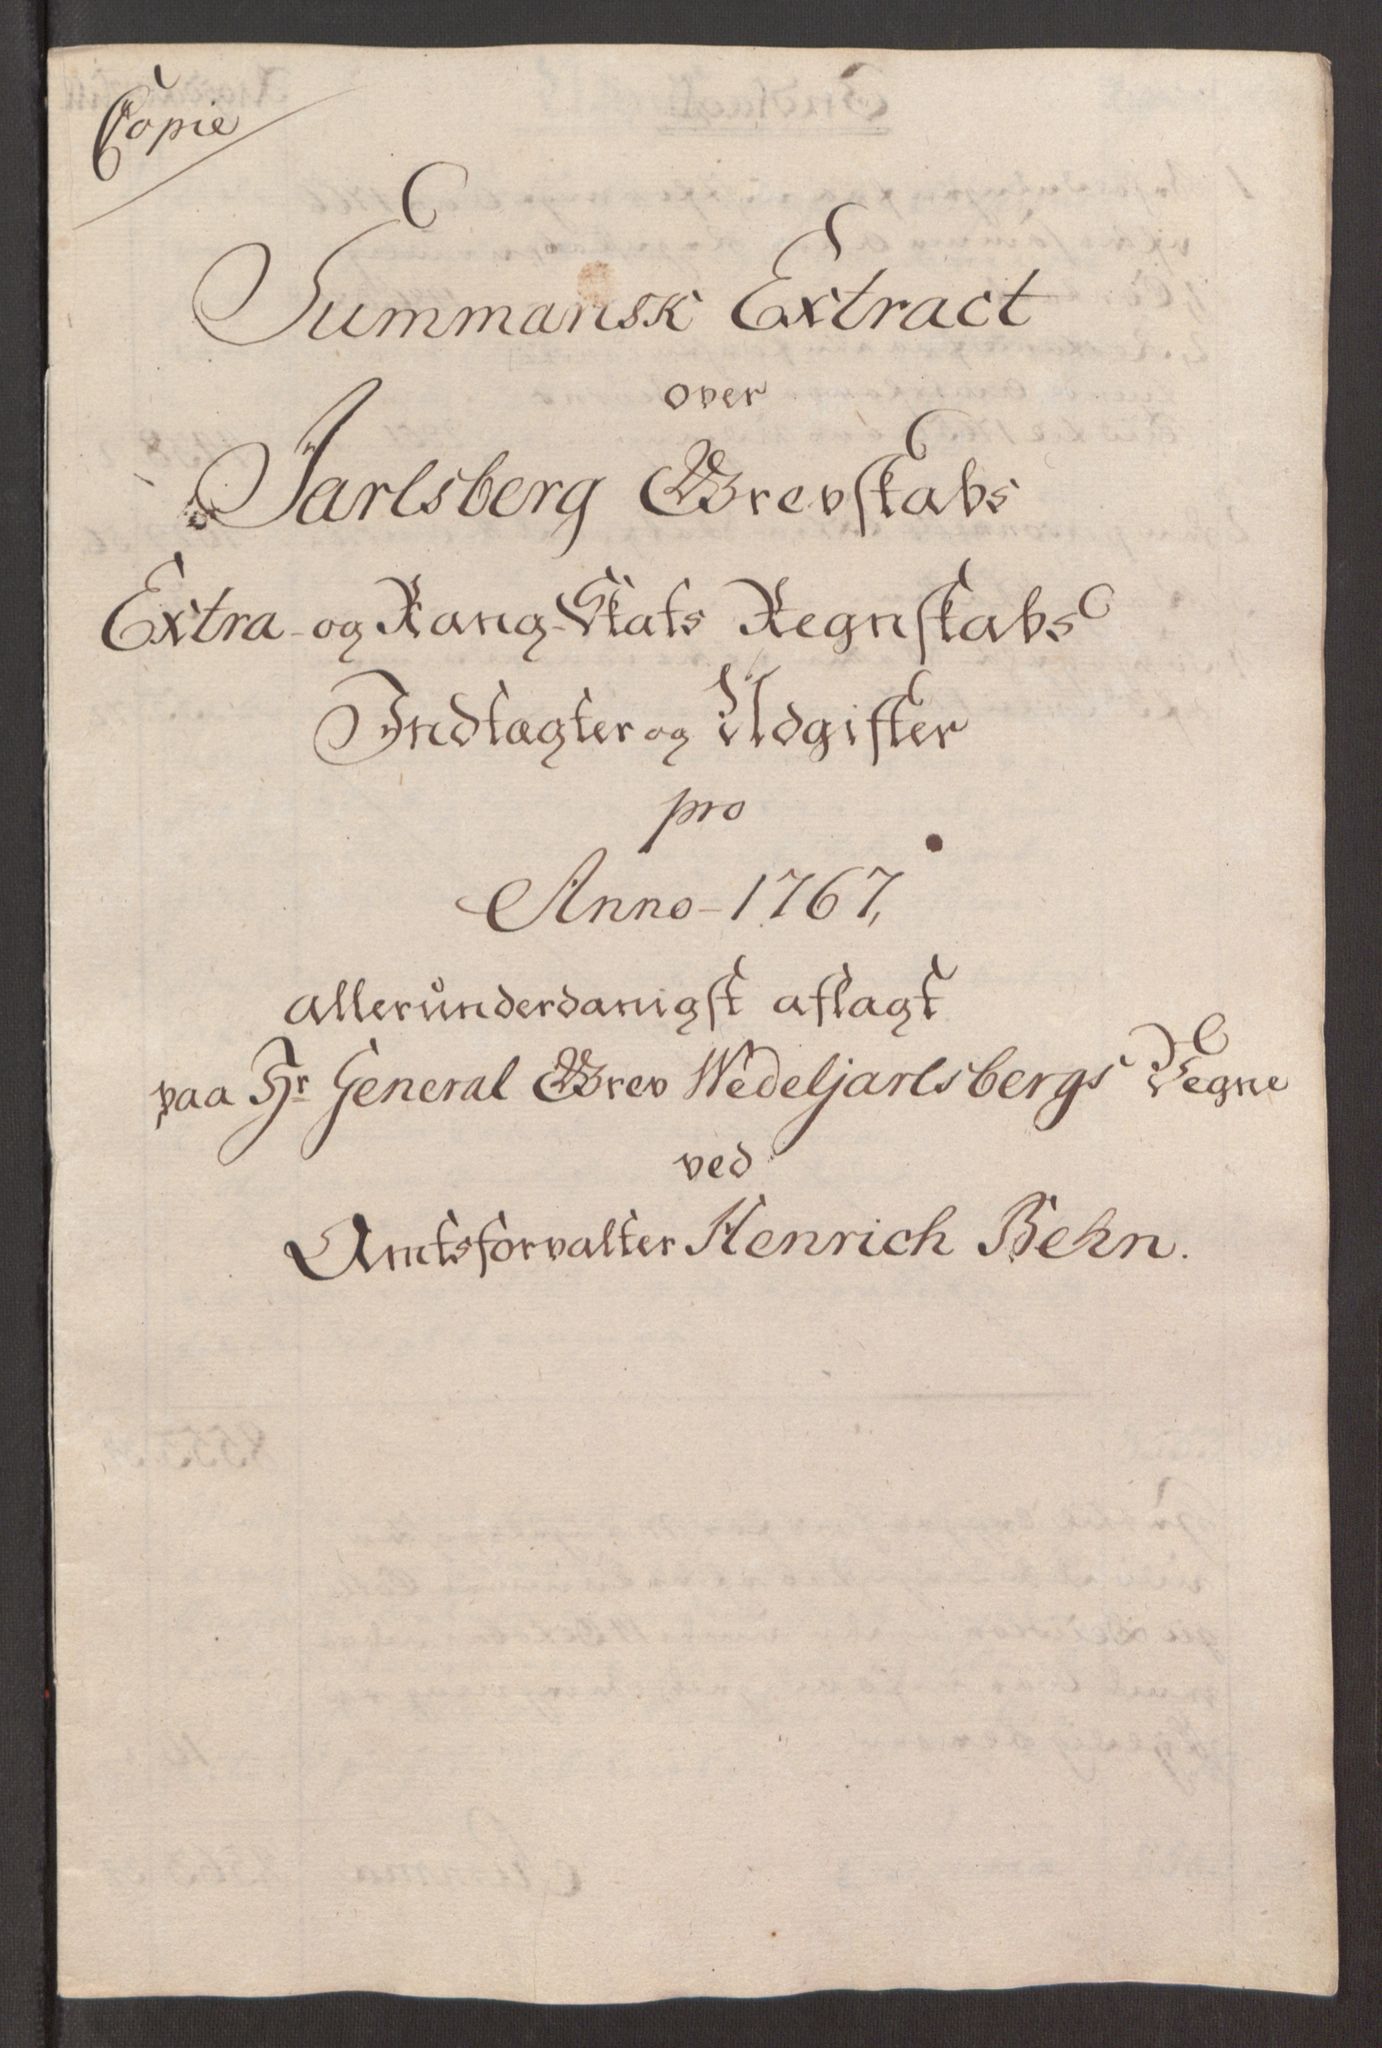 Copie
Summarisk Extract
over
Jarlsberg Grevskabs
Extra- og Rang-Skats Regnskabs
Indtægter og Udgifter
pro
Anno 1767,
allerunderdanigst aflagt
paa Hr General Grev Wedeljarlsbergs Vegne
ved
Amtsforvalter Henrich Behn.